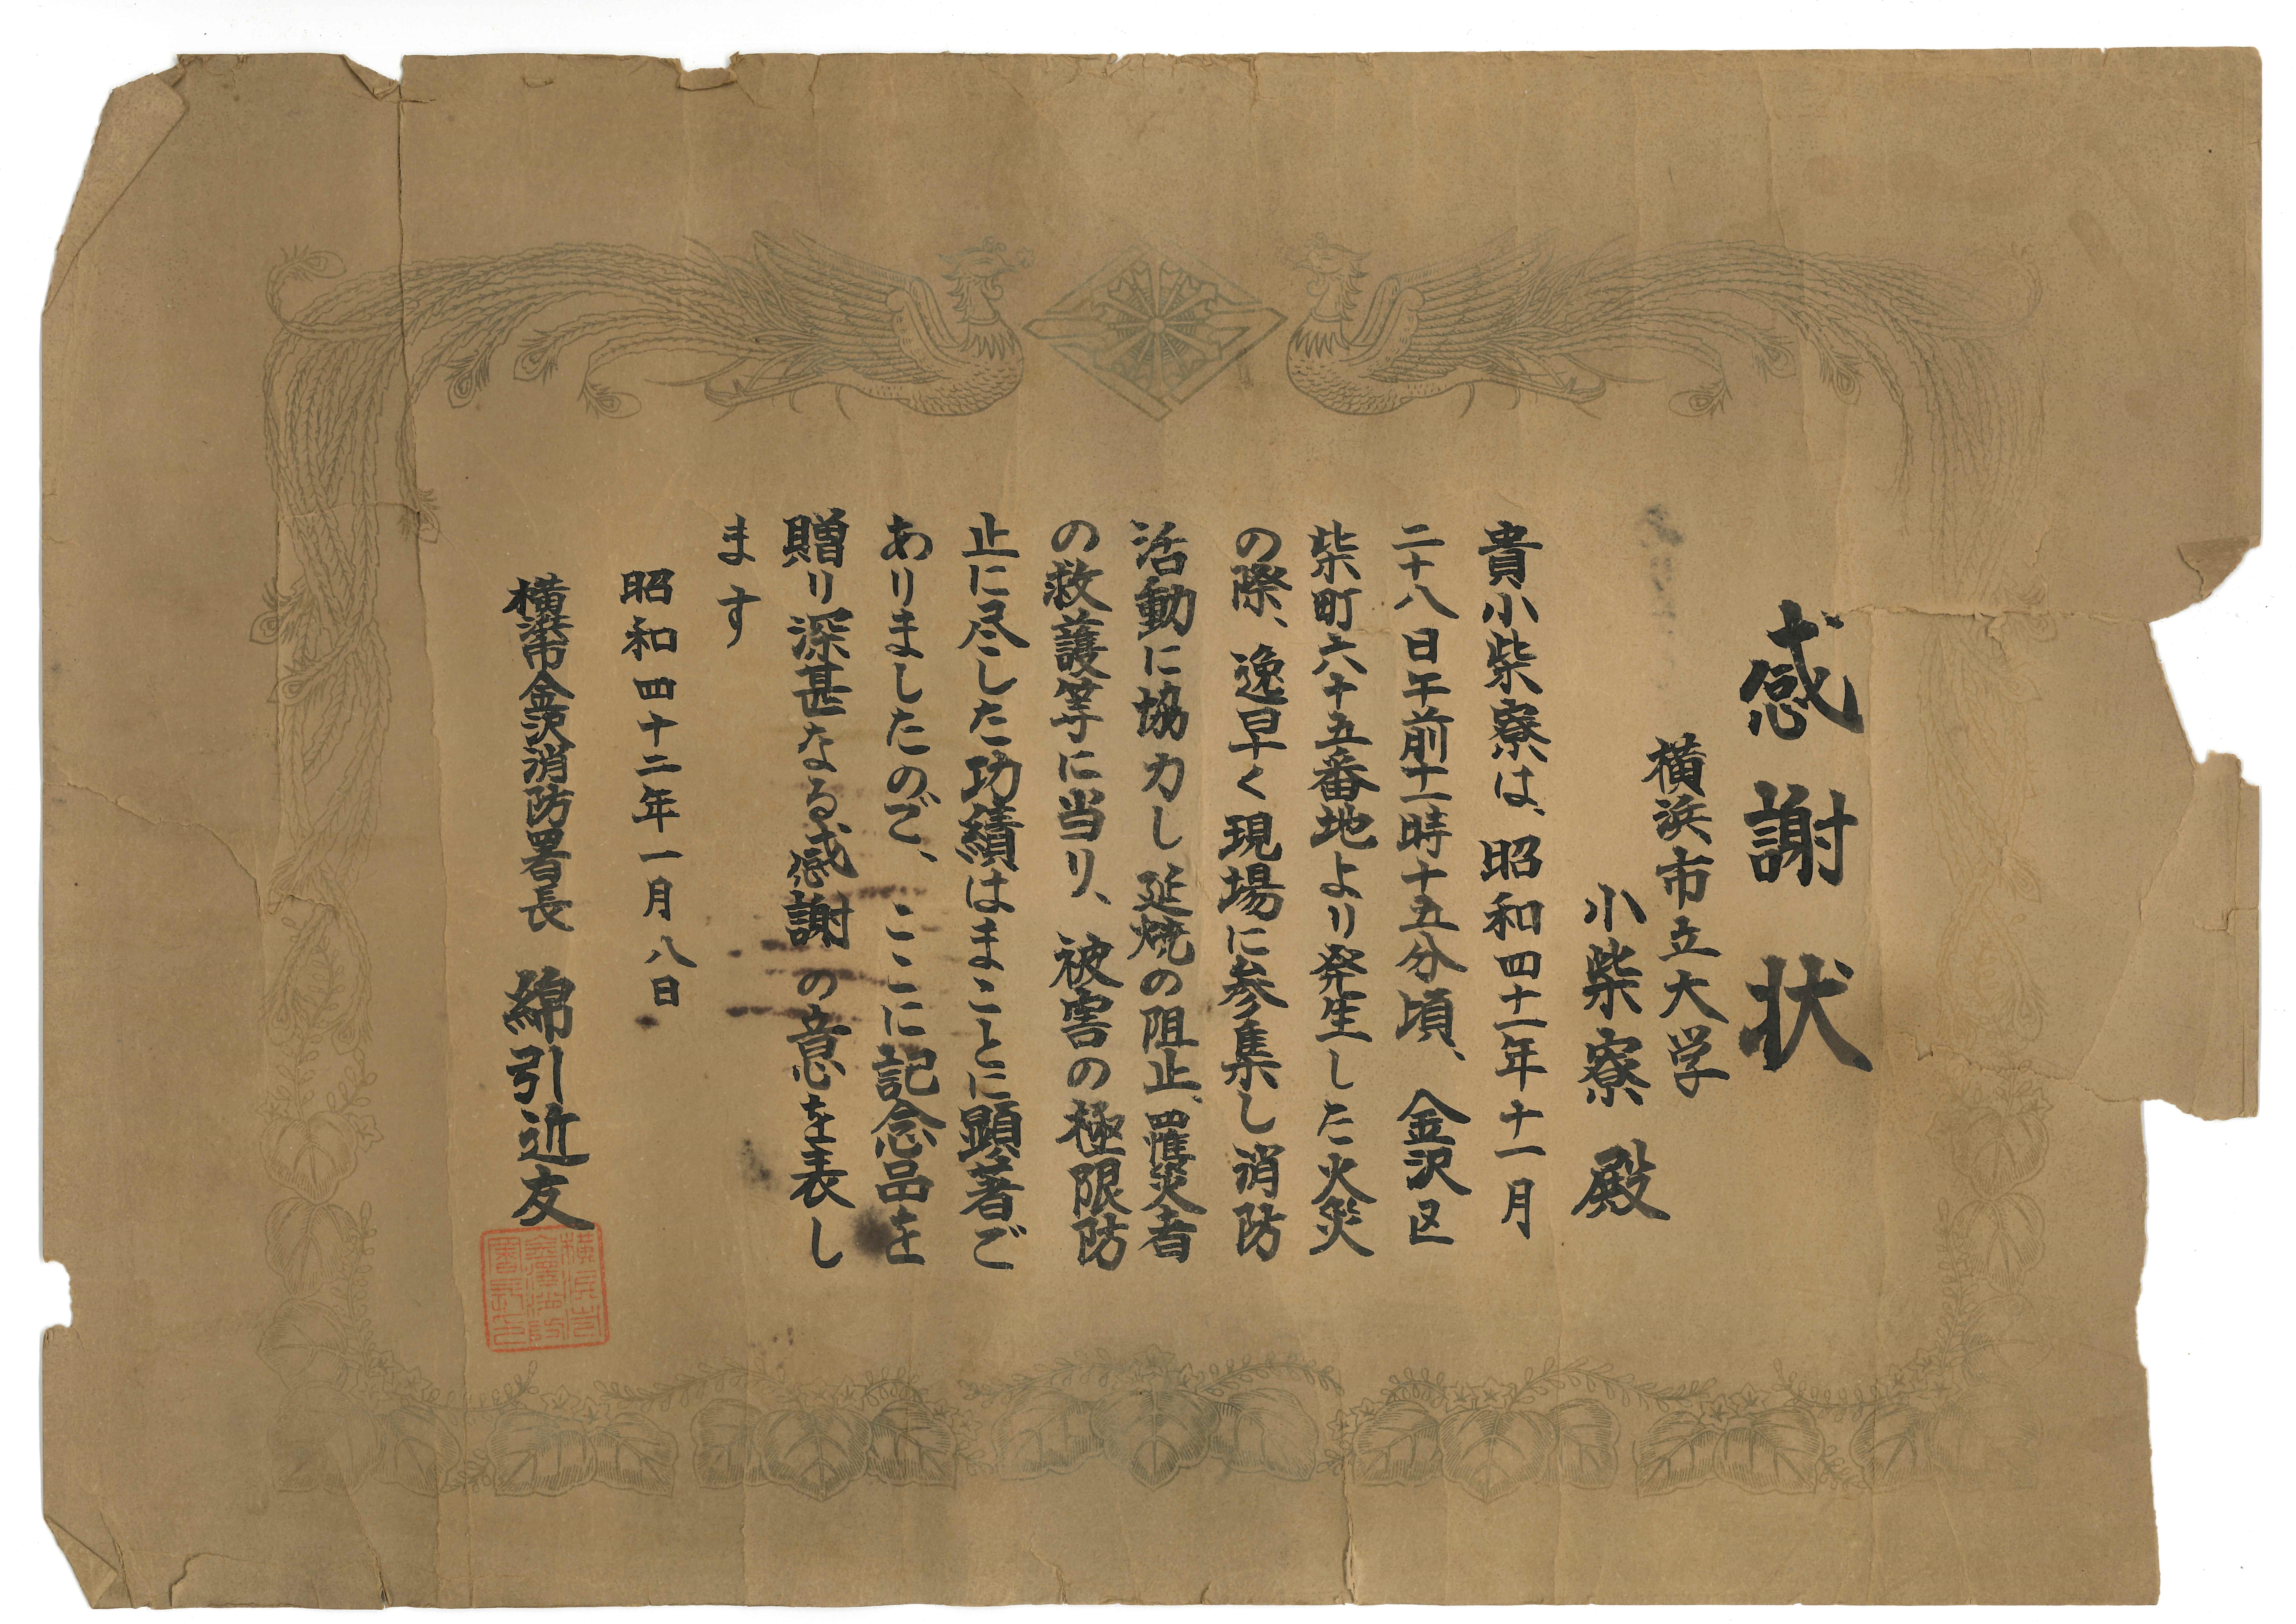 感謝状
横浜市立大学
小柴寮 殿
貴小柴寮は、昭和四十一年十一月
二十八日午前十一時十五分頃、金沢区
柴町六十五番地より発生した火災
の際、逸早く現場に参集し消防
活動に協力し延焼の阻止、罹災者
の救護等に当り、被害の極限防
止に尽した功績はまことに顕著ご
ありましたのご、ここに記念品を
贈り深甚なる感謝の意を表し
ます
昭和四十二年一月八日
横浜市金沢消防署長 綿引近友